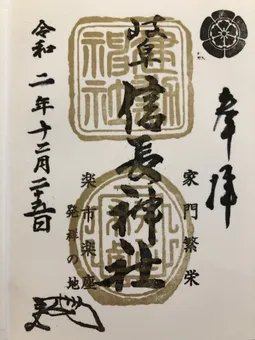 奉拝
家門繁栄
岐阜信長神社
楽市楽座
発祥の地
令和二年十二月二十五日